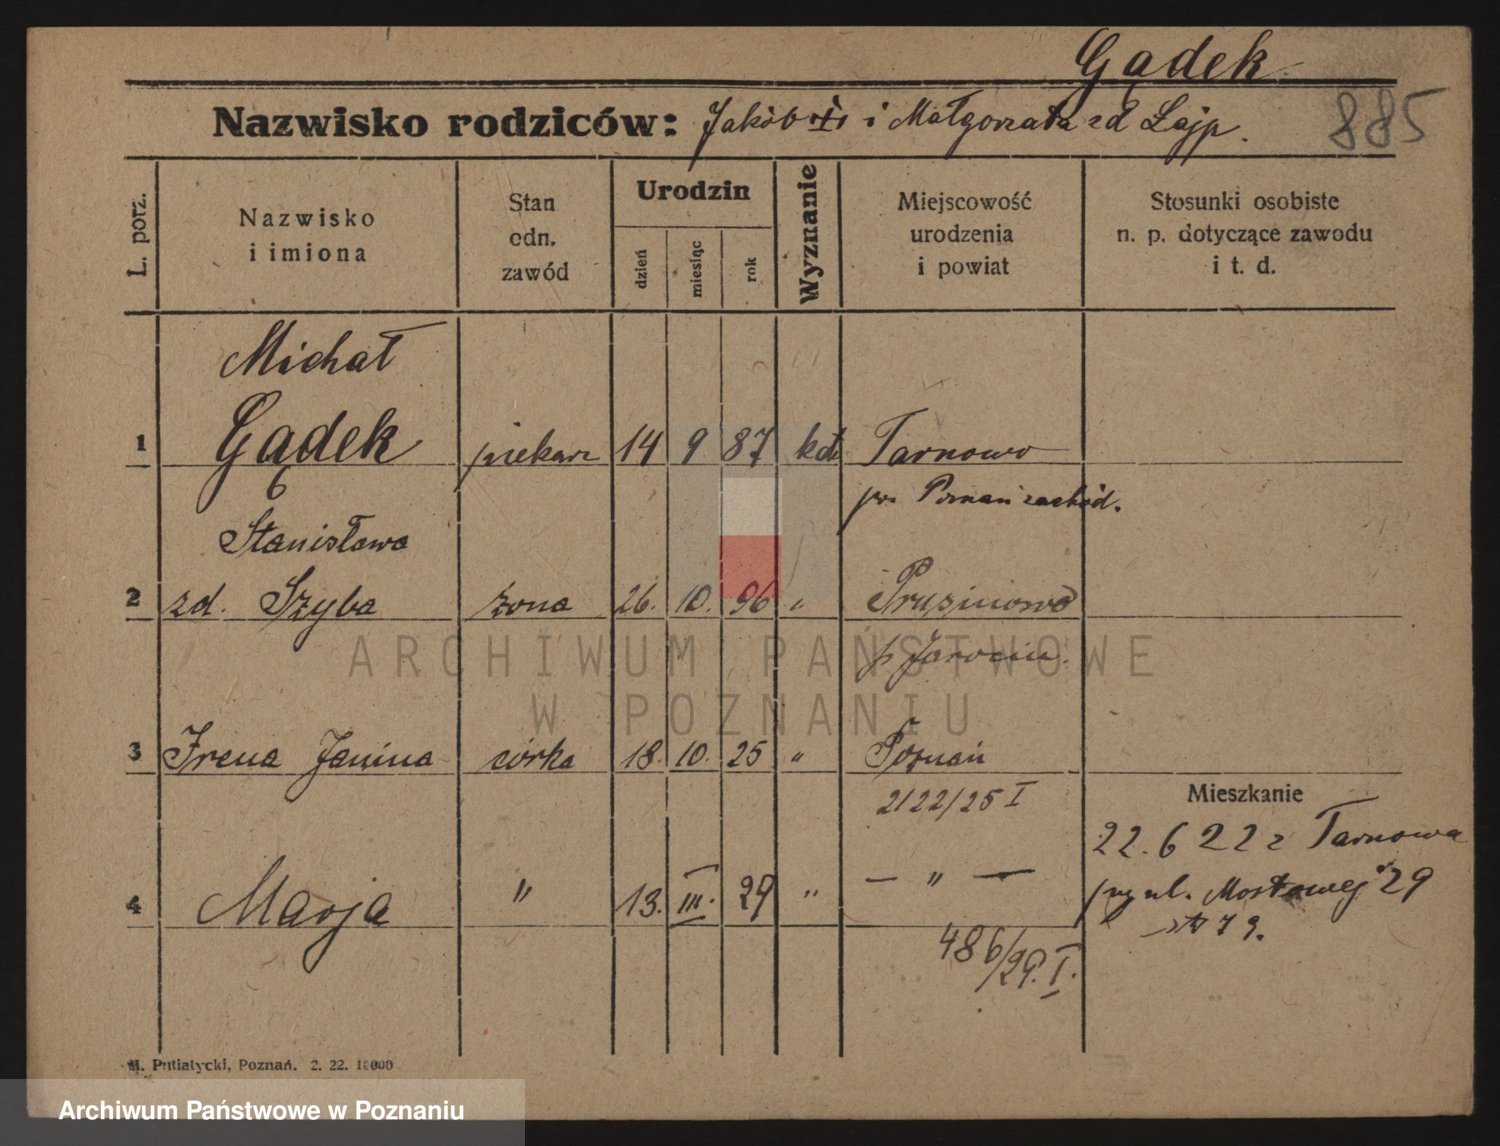 Gądek
Nazwisko rodziców: Jakób i Małgorzata zd Lajp.
885
L. porz.
Nazwisko i imiona
Stan odn. zawód
Urodzin
dzień
miesiąc
rok
Wyznanie
Miejscowość urodzenia i powiat
Stosunki osobiste n. p. dotyczące zawodu i t. d.
Michał
1 Gądek piekarz 14 9 87 kat Tarnowo
pow Poznań zachód.
Stanisława
2 zd. Szyba żona 26. 10. 96 " Prusinowo
p Jarocin.
3 Irena Janina córka 18. 10. 25 " Poznań
2122/25 I
Mieszkanie
22. 6 22 z Tarnowa
4 Marja " 13. III. 29 " — " —
przy ul. Mostowej 29
79.
486/29. I.
M. Putiatycki, Poznań. 2. 22. 10000
ARCHIWUM PAŃSTWOWE
W POZNANIU
Archiwum Państwowe w Poznaniu